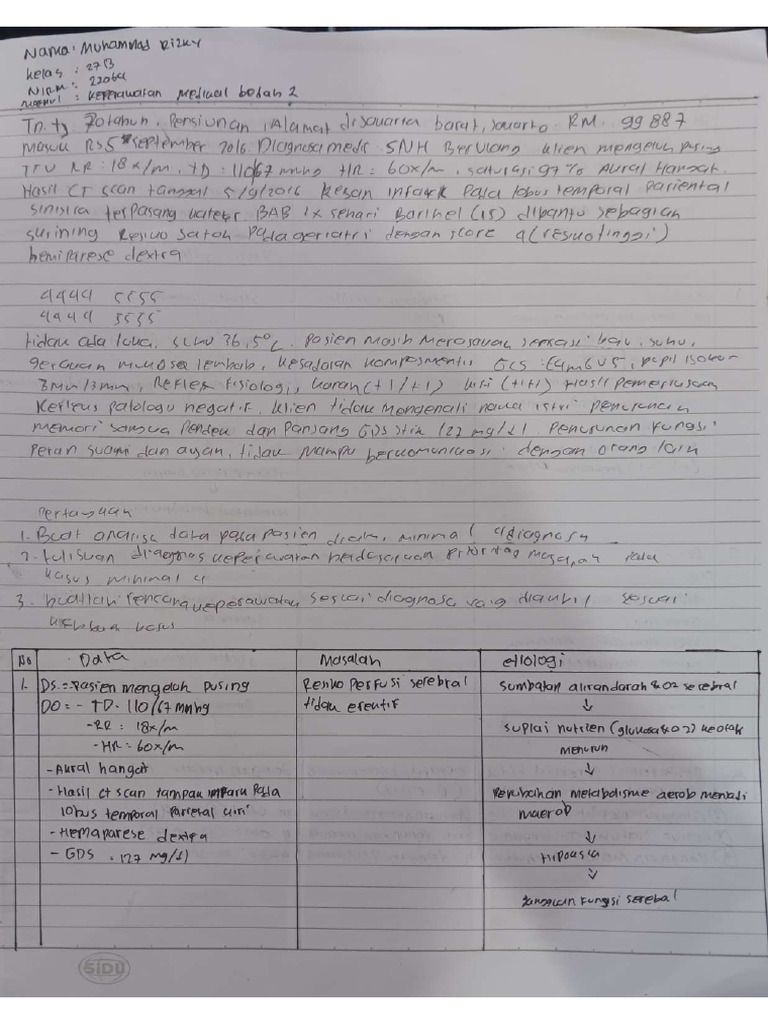 Nama : Muhammad Rizky
Kelas : 27B
NIRM : 22064
Matkul : Keperawatan Medikal bedah 2
Tn. ty 70 tahun, Pensiunan, Alamat di Jakarta barat, Jakarta RM. 99 887
Masuk RS 5 september 2016 Diagnosa medis SNH Berulang klien mengeluh pusing
TTV RR : 18x/m, TD : 110/67 mmhg HR : 60x/m, saturasi 97% Akral Hangat
Hasil CT scan tanggal 5/9/2016 kesan infark pada lobus temporal pariental
sinistra terpasang kateter BAB 1x sehari Barthel (15) dibantu sebagian
skrining Resiko Jatoh Pada geriatri dengan score 4 (resiko tinggi)
hemiparese dextra
4444 5555
4444 5555
tidak ada luka, suhu 36,5°c. Pasien masih Merasakan sensasi bau, suhu,
gerakan mukosa lembab, kesadaran komposmentis GCS : E4M6V5, pupil isokor
3mm/3mm, Reflek fisiologi, kanan (+1/+1) kiri (+1+1) Hasil pemeriksaan
Refleks patologi negatif, klien tidak mengenali nama istri Penurunan
memori jangka Pendek dan Panjang GDS stik 127 mg/dl. Penurunan fungsi
Peran suami dan ayah, tidak mampu berkomunikasi dengan orang lain
Pertanyaan
1. Buat analisa data pada pasien diatas, minimal 4 diagnosa
2. tuliskan diagnosa keperawatan berdasarkan prioritas masalah pada
kasus minimal 4
3. buatlah rencana keperawatan sesuai diagnosa yang diambil sesuai
kasus
No Data Masalah etiologi
1. DS : - Pasien mengeluh pusing
DO : - TD. 110/67 mmhg
- RR : 18x/m
- HR : 60x/m
- Akral hangat
- Hasil CT scan tampak infark pada
lobus temporal parietal kiri
- Hemaparese dextra
- GDS . 127 mg/dl
Resiko Perfusi serebral
tidak efektif
Sumbatan aliran darah & O2 serebral
↓
suplai nutrien (glukosa & O2) keotak
menurun
↓
Perubahan metabolisme aerob menjadi
anaerob
↓
Hipoksia
↓
Gangguan fungsi serebal
SIDU